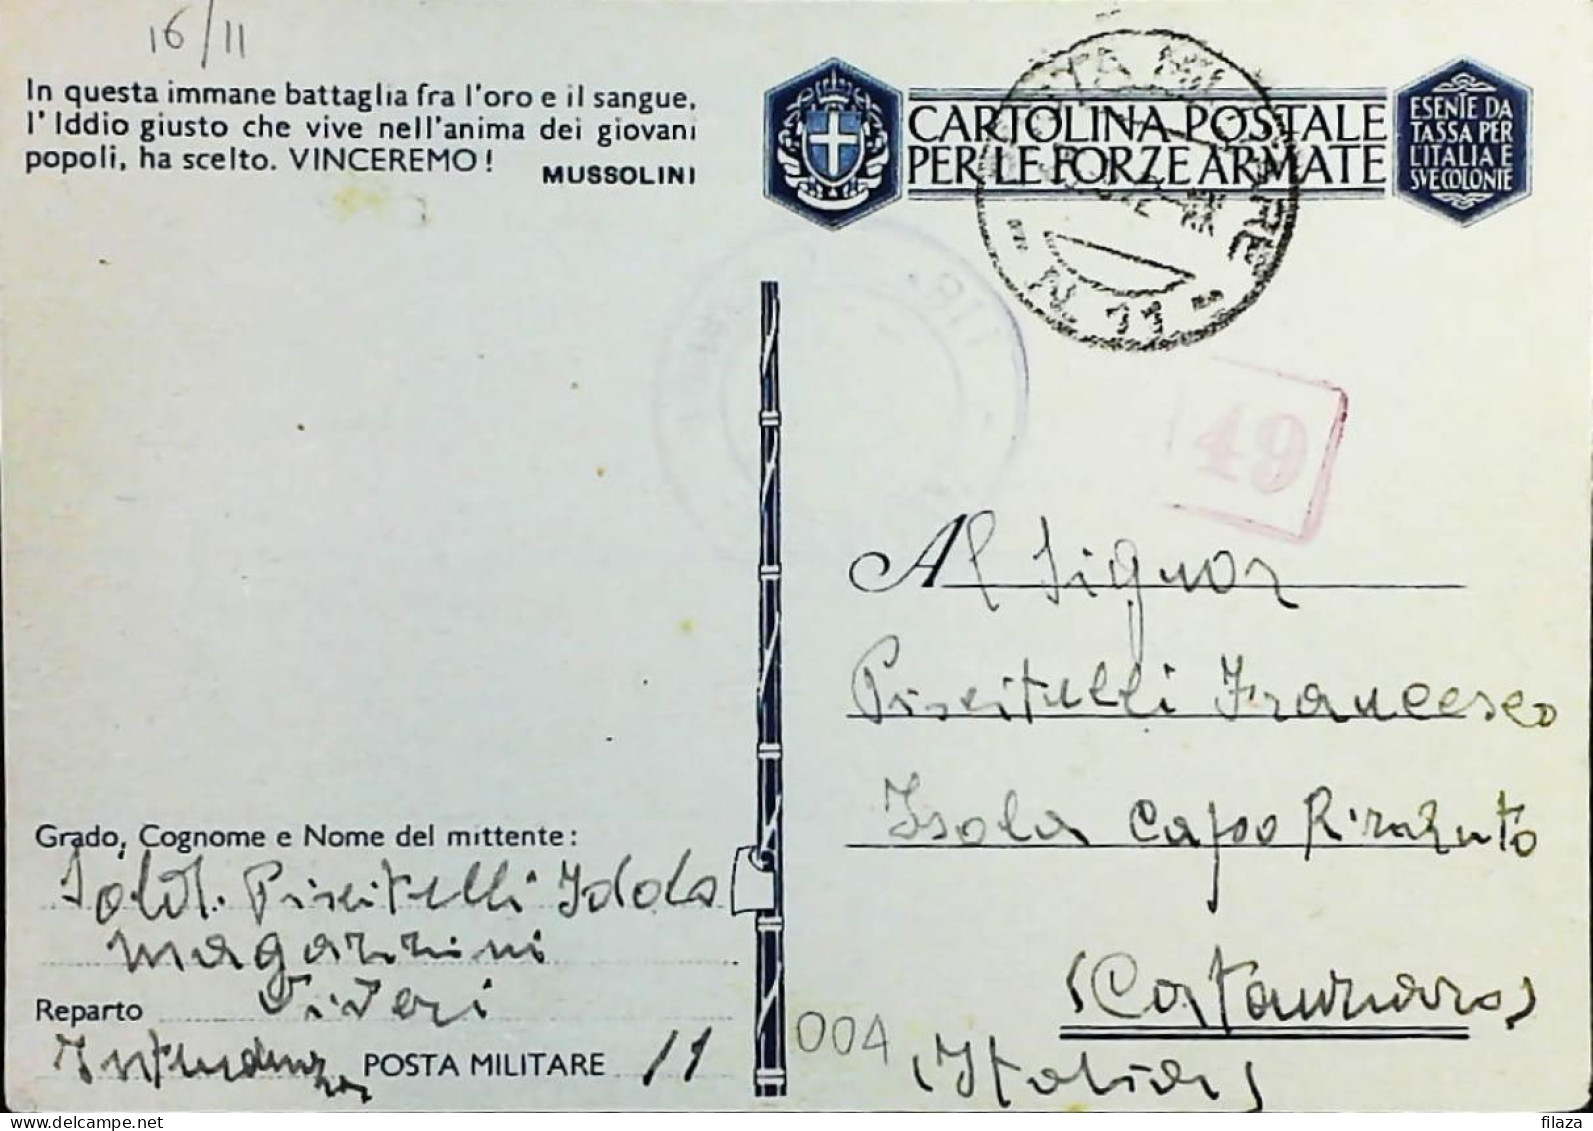 16/11
In questa immane battaglia fra l'oro e il sangue,
l'Iddio giusto che vive nell'anima dei giovani
popoli, ha scelto. VINCEREMO!
MUSSOLINI
CARTOLINA POSTALE
PER LE FORZE ARMATE
ESENTE DA
TASSA PER
L'ITALIA E
SVE COLONIE
POSTA MILITARE
N. 11
49
Al Signor
Piscitelli Francesco
Isola Capo Rizzuto
(Catanzaro)
(Italia)
Grado, Cognome e Nome del mittente:
Sold. Piscitelli Isola
magazzini
Reparto Viveri
Intendenza POSTA MILITARE 11
004
filaza